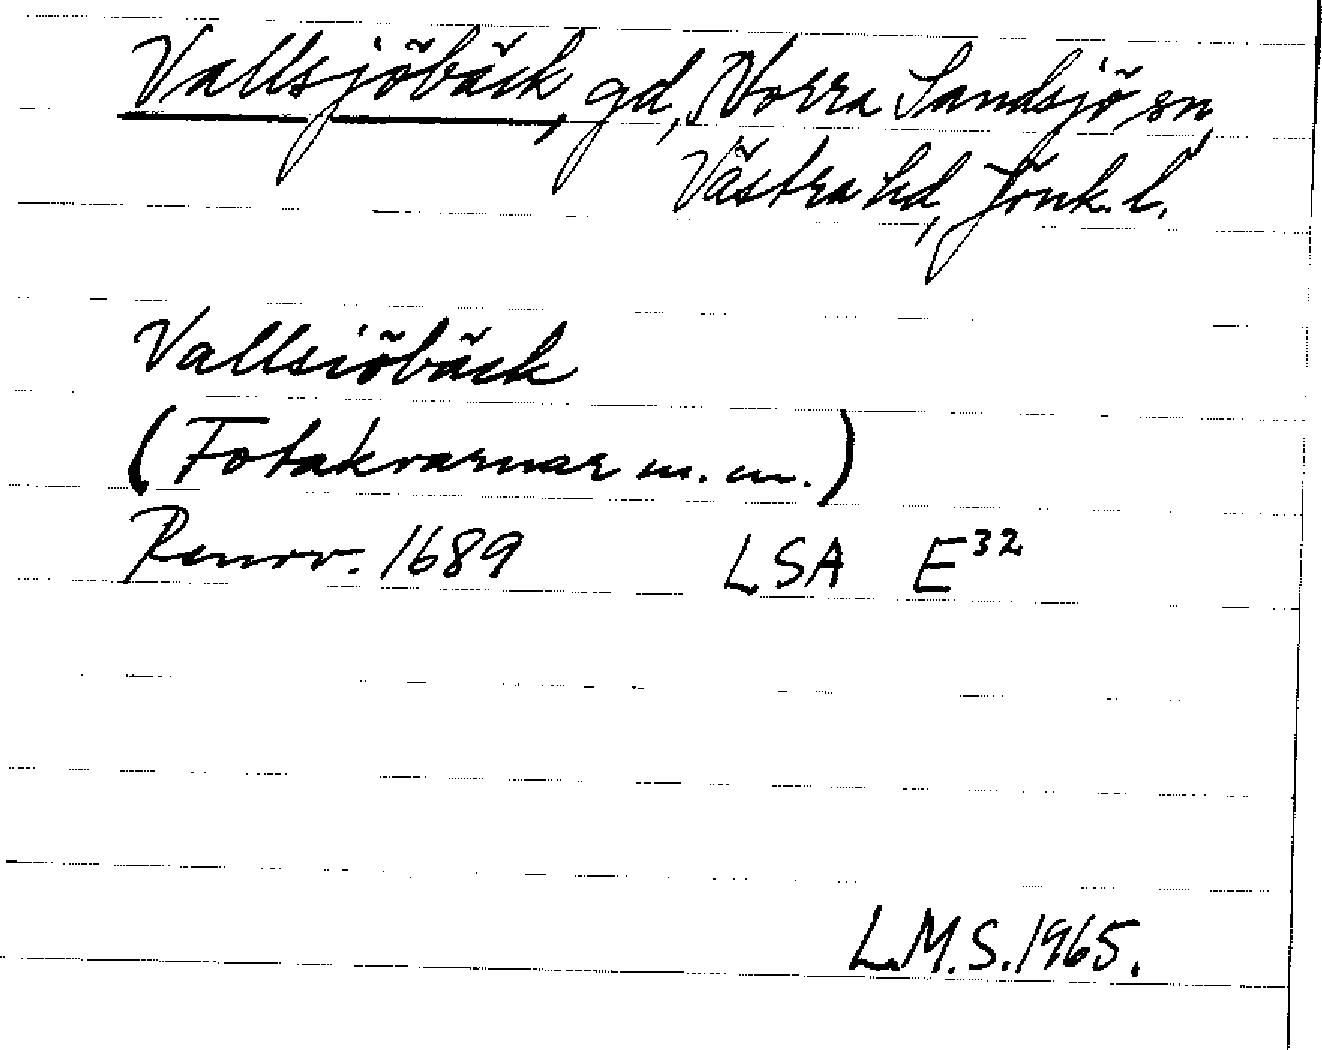 Vallsjöbäck, gd, Norra Sandsjö sn,
Västra hd, Jönk. l.
Vallsiöbäck
(Fotakvarnar m. m.)
Renov. 1689 LSA E32
L.M.S. 1965.